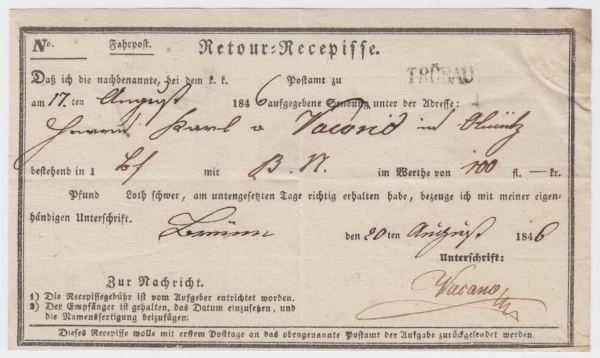 No. Fahrpost. Retour=Recepisse.
Daß ich die nachbenannte, bei dem k. k. Postamt zu TRÜBAU
am 17.ten August 1846 aufgegebene Sendung unter der Adresse:
Herrn Karl v Vacano in Olmütz
bestehend in 1 Bf mit B. N. im Werthe von 100 fl. — kr.
Pfund Loth schwer, am untengesetzten Tage richtig erhalten habe, bezeuge ich mit meiner eigen-
händigen Unterschrift.
Brünn den 20ten August 1846
Unterschrift:
Vacano
Zur Nachricht.
1) Die Recepissegebühr ist vom Aufgeber entrichtet worden.
2) Der Empfänger ist gehalten, das Datum einzusetzen, und
die Namensfertigung beizufügen.
Dieses Recepisse wolle mit erstem Posttage an das obengenannte Postamt der Aufgabe zurückgesendet werden.